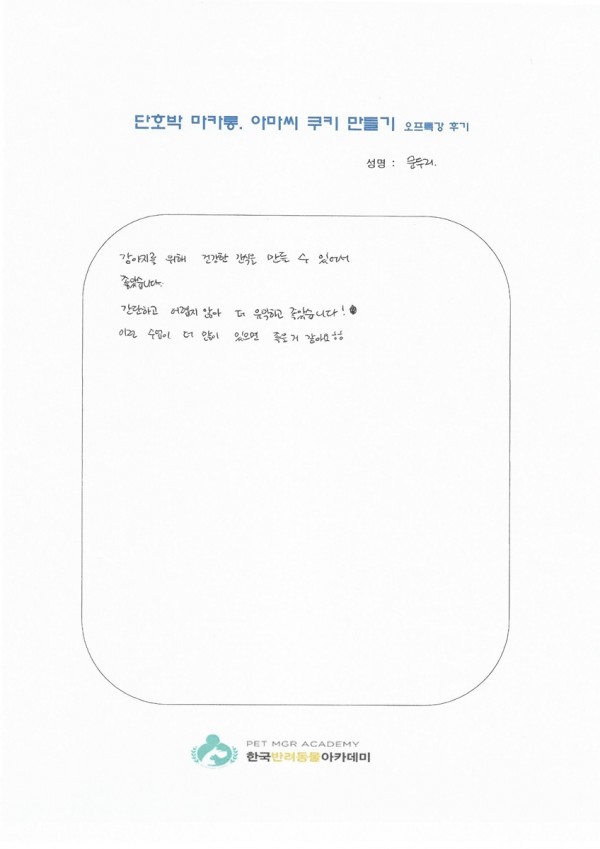 단호박 마카롱. 아마씨 쿠키 만들기 오프특강 후기
성명 : 문두리.
강아지를 위해 건강한 간식을 만들 수 있어서
좋았습니다.
간단하고 어렵지 않아 더 유익하고 좋았습니다!
이런 수업이 더 많이 있으면 좋을거 같아요ㅎㅎ
PET MGR ACADEMY
한국반려동물아카데미